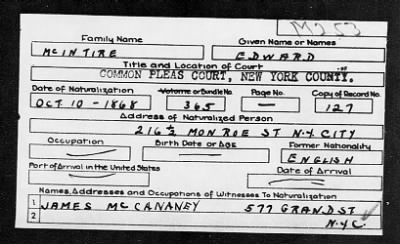 M253
Family Name Given Name or Names
McINTIRE EDWARD
Title and Location of Court
COMMON PLEAS COURT, NEW YORK COUNTY.
Date of Naturalization Volume or Bundle No. Page No. Copy of Record No.
OCT 10 - 1868 365 — 127
Address of Naturalized Person
216 ½ MONROE ST N.Y. CITY
Occupation Birth Date or Age Former Nationality
— — ENGLISH
Port of Arrival in the United States Date of Arrival
— —
Names, Addresses and Occupations of Witnesses To Naturalization
1 JAMES McCANANEY 577 GRAND ST
2 N.Y.C.